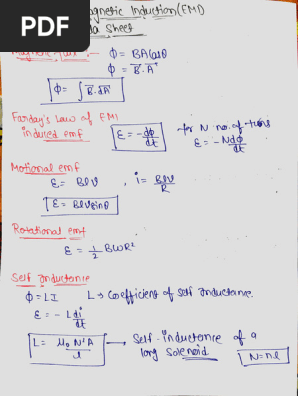 PDF
agnetic Induction(EMI)
la Sheet
Magnetic flux :- Φ = BA cosθ
Φ = B⃗.A⃗
Φ = ∫ B⃗.dA⃗
Farday's Law of EMI
induced emf
ε = -dΦ/dt
for N no. of turns
ε = -NdΦ/dt
Motional emf
ε = Blv , i = Blv/R
ε = Blv sinθ
Rotational emf
ε = 1/2 BWR²
Self Inductance
Φ = LI L → Coefficient of Self Inductance.
ε = - L di/dt
L = μ₀N²A/l → Self-inductance of a
long Solenoid
N = nl